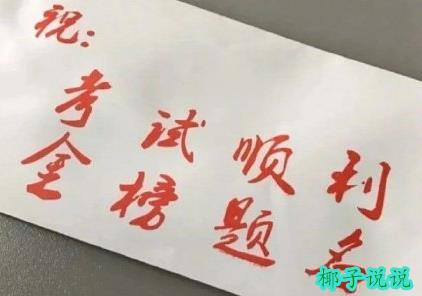 祝:
考试顺利
金榜题名
椰子说说